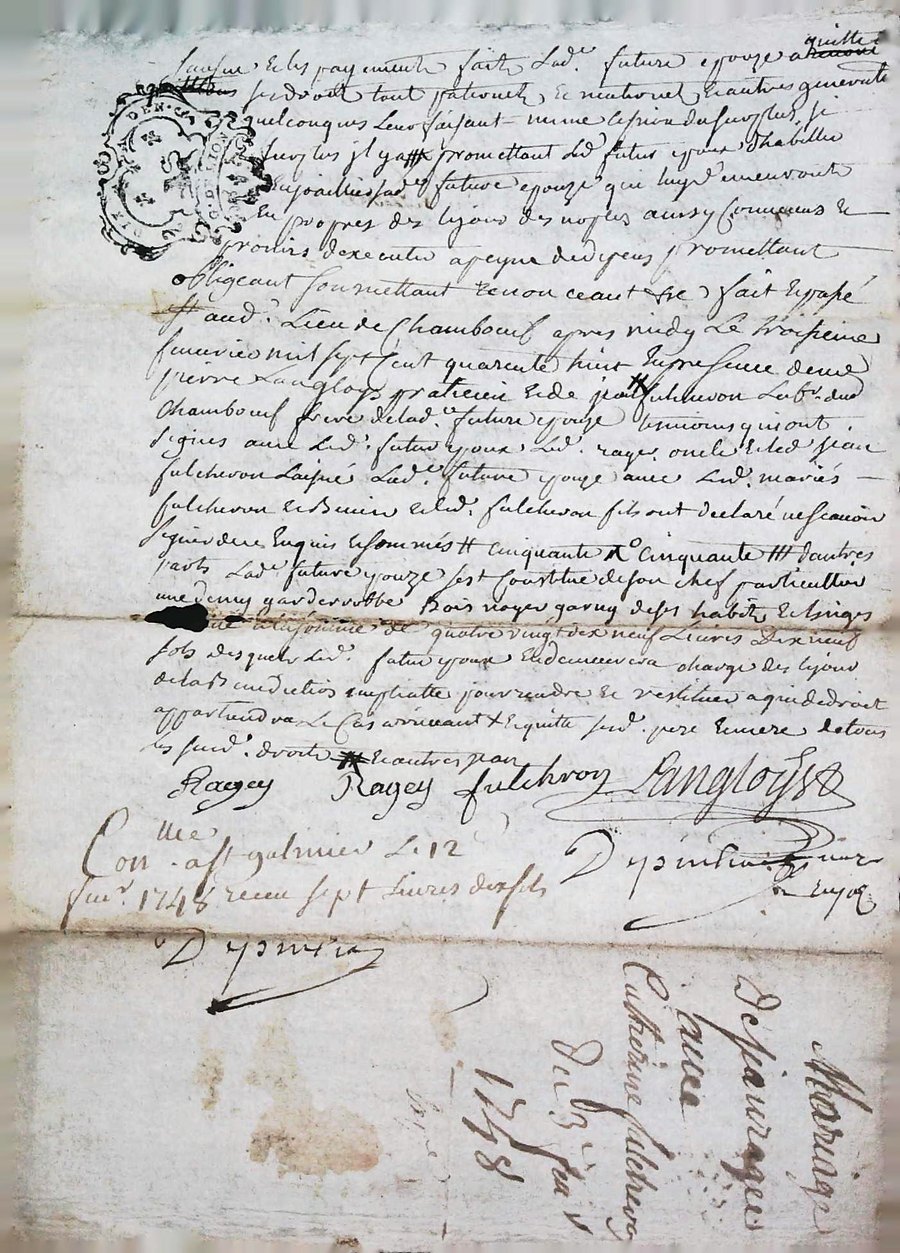 quitte
et les payements faits lad.e future epouze a
ses droits tant paternels et maternels et autres generaux
quelconques leur faisant mesme cession du surplus, si
surplus il y a promettant led futur epoux d'habiller
Enjoailler lad.e future epouze qui luy demeureront
En propres des bijoux des nopces aussy Convenus Et
promis d'executer a peyne de depens promettant
obligeant soumettant renonceant &c fait Et passé
aud.t Lieu de Chambœuf apres midy Le troisieme
feuvrier mil sept Cent quarente huit En presence de me
pierre Langlois praticien et de jean fulcheron Lab.r dud
Chambœuf frere de lad.e future epouze temoins qui ont
signes avec led.t futur epoux led.t ragey oncle et led jean
fulcheron Laisné Lad.e future epouze avec Led.s mariés
fulcheron et et led.t fulcheron fils ont declaré ne scavoir
signer de ce Enquis et sommés # cinquante n.o cinquante ### d'autres
parts Lad.e future epouze s'est Constitue de son chef particullier
une demy garderobbe Bois noyer garny de ses habits et linges
a la somme de quatre vingt dix neuf Livres Dix neuf
sols desquels led.t futur epoux En demeurera charge des bijoux
de la pour rendre Et restituer a qui de droit
appartiendra Le Cas arrivant & Et quitte sesd.s pere Et mere de tous
les susd.s droits Et autres jean
Ragey Ragey fulchron Langloys
Con.lle a st galmier Le 12
feuv.r 1748 receu sept Livres dix sols
Mariage
De jean ragey
avec
Catherine fulcheron
Du 3e feu.r
1748